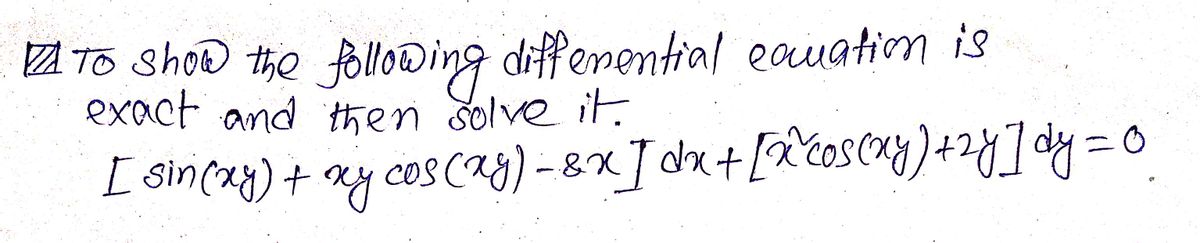 To show the following differential equation is
exact and then solve it.
[sin(xy) + xy cos(xy) - 8x] dx + [x² cos(xy) + 2y] dy = 0